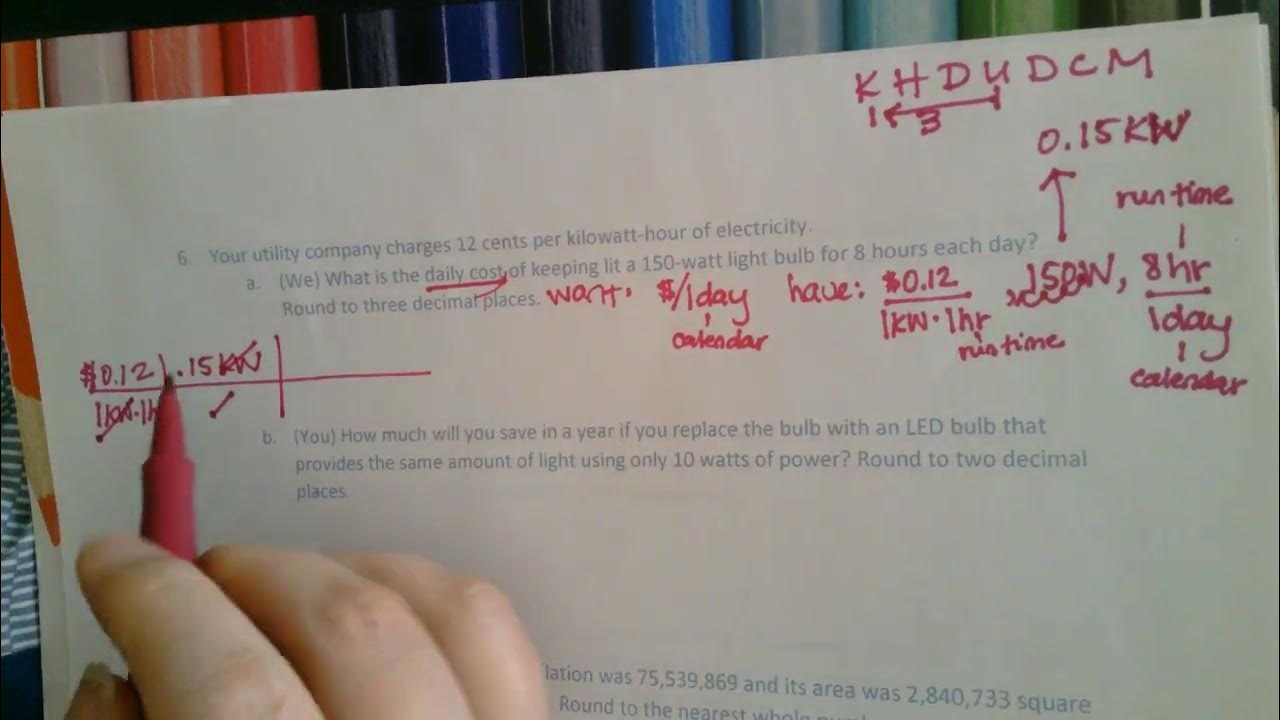 K H D U D C M
1 3
0.15KW
run time
6. Your utility company charges 12 cents per kilowatt-hour of electricity.
a. (We) What is the daily cost of keeping lit a 150-watt light bulb for 8 hours each day?
Round to three decimal places. want: $/1day have: $0.12 / 1KW·1hr , 150W, 8hr / 1day
calendar
run time
calendar
$0.12 | .15KW
1KW·1h
b. (You) How much will you save in a year if you replace the bulb with an LED bulb that
provides the same amount of light using only 10 watts of power? Round to two decimal
places.
lation was 75,539,869 and its area was 2,840,733 square
Round to the nearest whole